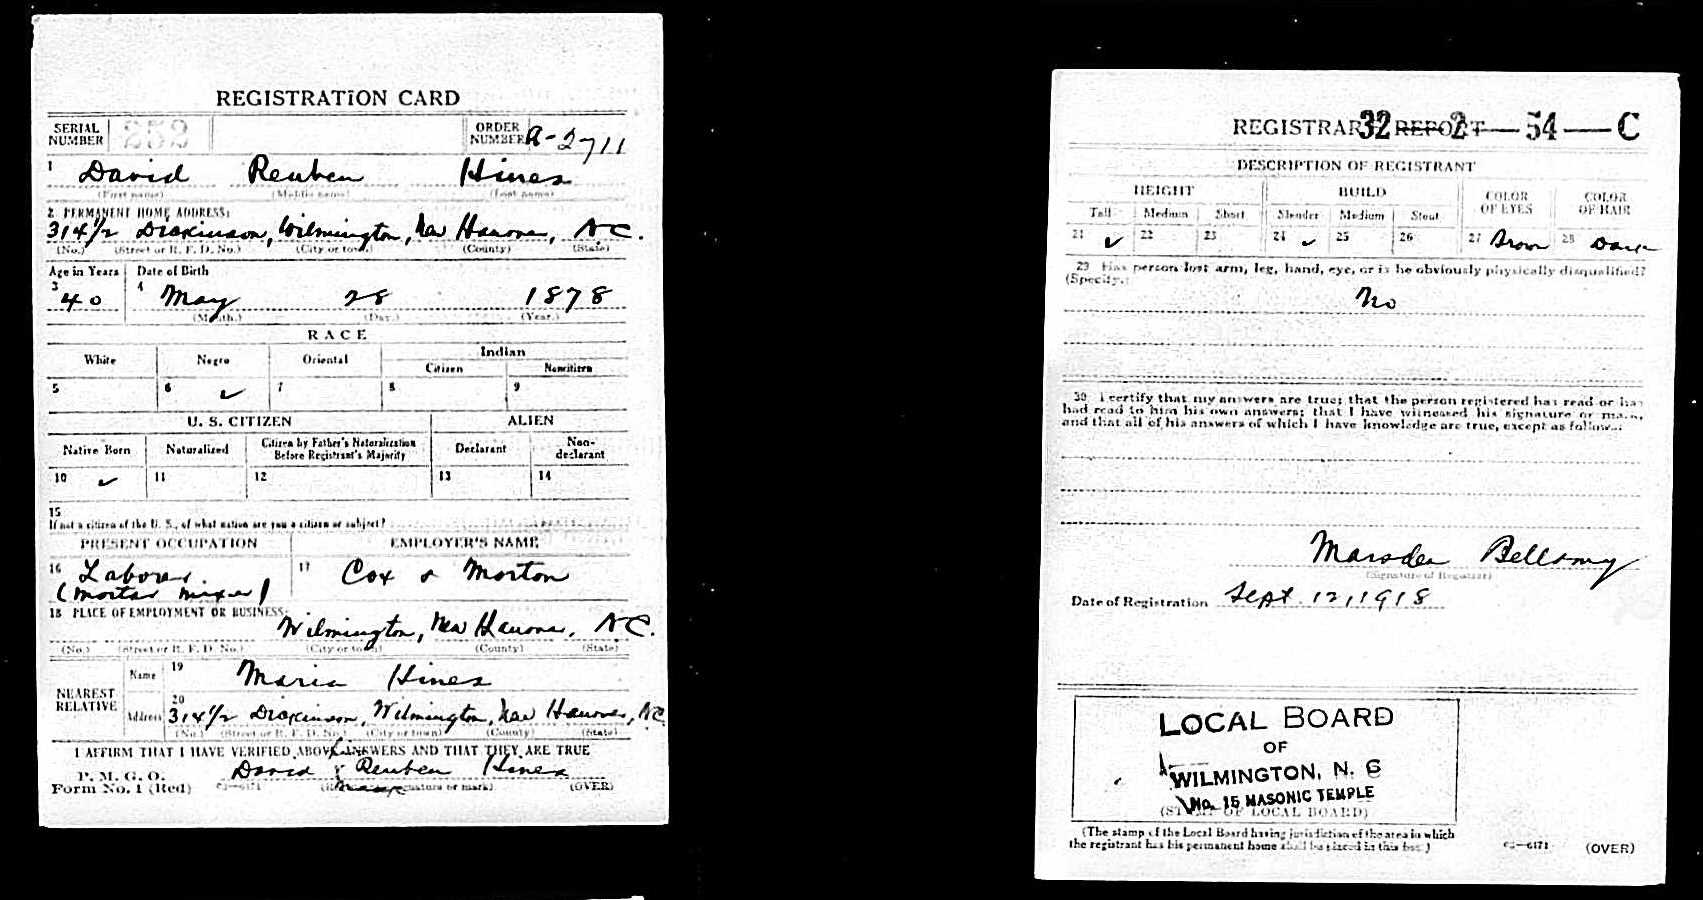 REGISTRATION CARD
SERIAL NUMBER 252 ORDER NUMBER A-2711
1 David Reuben Hines
(First name) (Middle name) (Last name)
2 PERMANENT HOME ADDRESS:
314 1/2 Dickinson, Wilmington, New Hanover, N.C.
(No.) (Street or R. F. D. No.) (City or town) (County) (State)
Age in Years Date of Birth
3 40 4 May 28 1878
(Month.) (Day.) (Year.)
RACE
White Negro Oriental Indian
Citizen Noncitizen
5 6 ✓ 7 8 9
U. S. CITIZEN ALIEN
Native Born Naturalized Citizen by Father's Naturalization Before Registrant's Majority Declarant Non-declarant
10 ✓ 11 12 13 14
15
If not a citizen of the U. S., of what nation are you a citizen or subject?
PRESENT OCCUPATION EMPLOYER'S NAME
16 Laborer. 17 Cox & Morton
(mortar mixer)
18 PLACE OF EMPLOYMENT OR BUSINESS:
Wilmington, New Hanover, N.C.
(No.) (Street or R. F. D. No.) (City or town) (County) (State)
NEAREST RELATIVE
Name 19 Maria Hines
Address 20 314 1/2 Dickinson, Wilmington, New Hanover, N.C.
(No.) (Street or R. F. D. No.) (City or town) (County) (State)
I AFFIRM THAT I HAVE VERIFIED ABOVE ANSWERS AND THAT THEY ARE TRUE
P. M. G. O.
Form No. 1 (Red)
David x Reuben Hines
mark
(Registrant's signature or mark) (OVER)
REGISTRAR'S REPORT
32 2—54—C
DESCRIPTION OF REGISTRANT
HEIGHT BUILD COLOR OF EYES COLOR OF HAIR
Tall Medium Short Slender Medium Stout
21 ✓ 22 23 24 ✓ 25 26 27 Brown 28 Dark
29 Has person lost arm, leg, hand, eye, or is he obviously physically disqualified?
(Specify.)
No
30 I certify that my answers are true; that the person registered has read or has
had read to him his own answers; that I have witnessed his signature or mark,
and that all of his answers of which I have knowledge are true, except as follows:
Marsden Bellamy
(Signature of Registrar)
Date of Registration Sept 12, 1918
LOCAL BOARD
OF
WILMINGTON, N. C
No. 15 MASONIC TEMPLE
(STAMP OF LOCAL BOARD)
(The stamp of the Local Board having jurisdiction of the area in which
the registrant has his permanent home shall be placed in this box.)
(OVER)